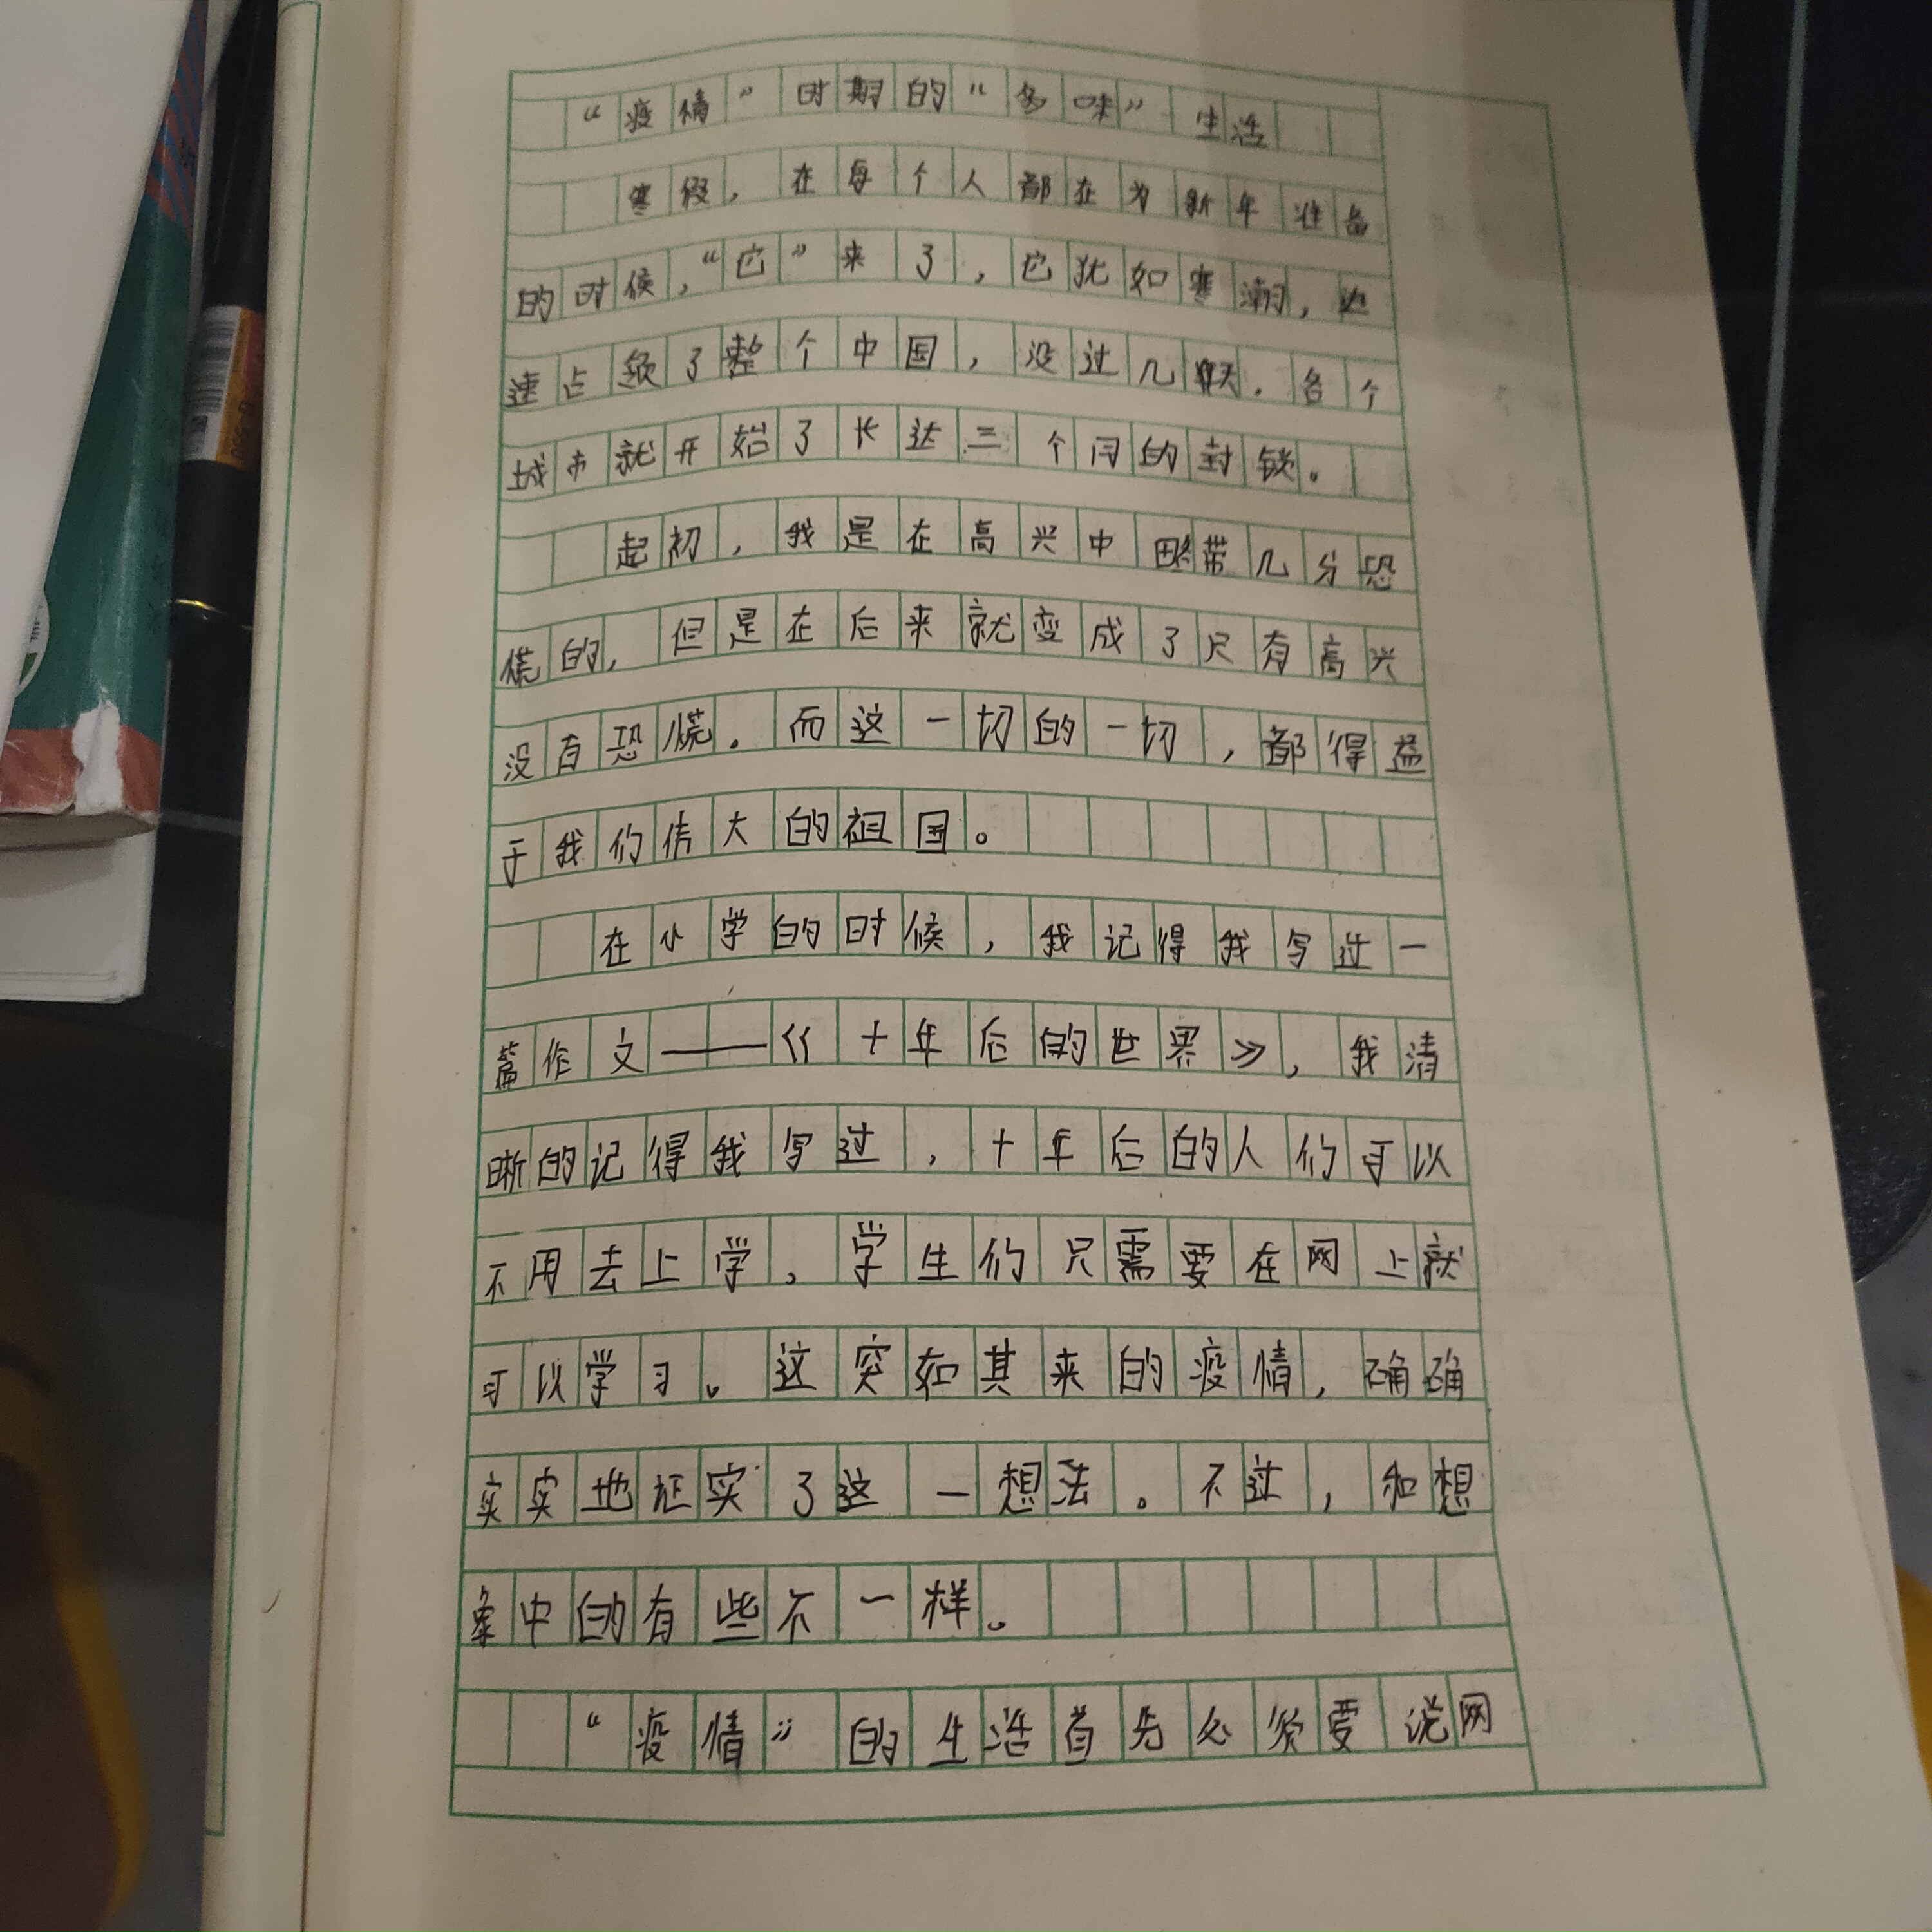 “疫情”时期的“多味”生活
寒假，在每个人都在为新年准备
的时候，“它”来了，它犹如寒潮，迅
速占领了整个中国，没过几天，各个
城市就开始了长达三个月的封锁。
起初，我是在高兴中略带几分恐
慌的，但是在后来就变成了只有高兴
没有恐慌。而这一切的一切，都得益
于我们伟大的祖国。
在小学的时候，我记得我写过一
篇作文——《十年后的世界》，我清
晰的记得我写过，十年后的人们可以
不用去上学，学生们只需要在网上就
可以学习。这突如其来的疫情，确确
实实地证实了这一想法。不过，和想
象中的有些不一样。
“疫情”的生活首先必须要说网